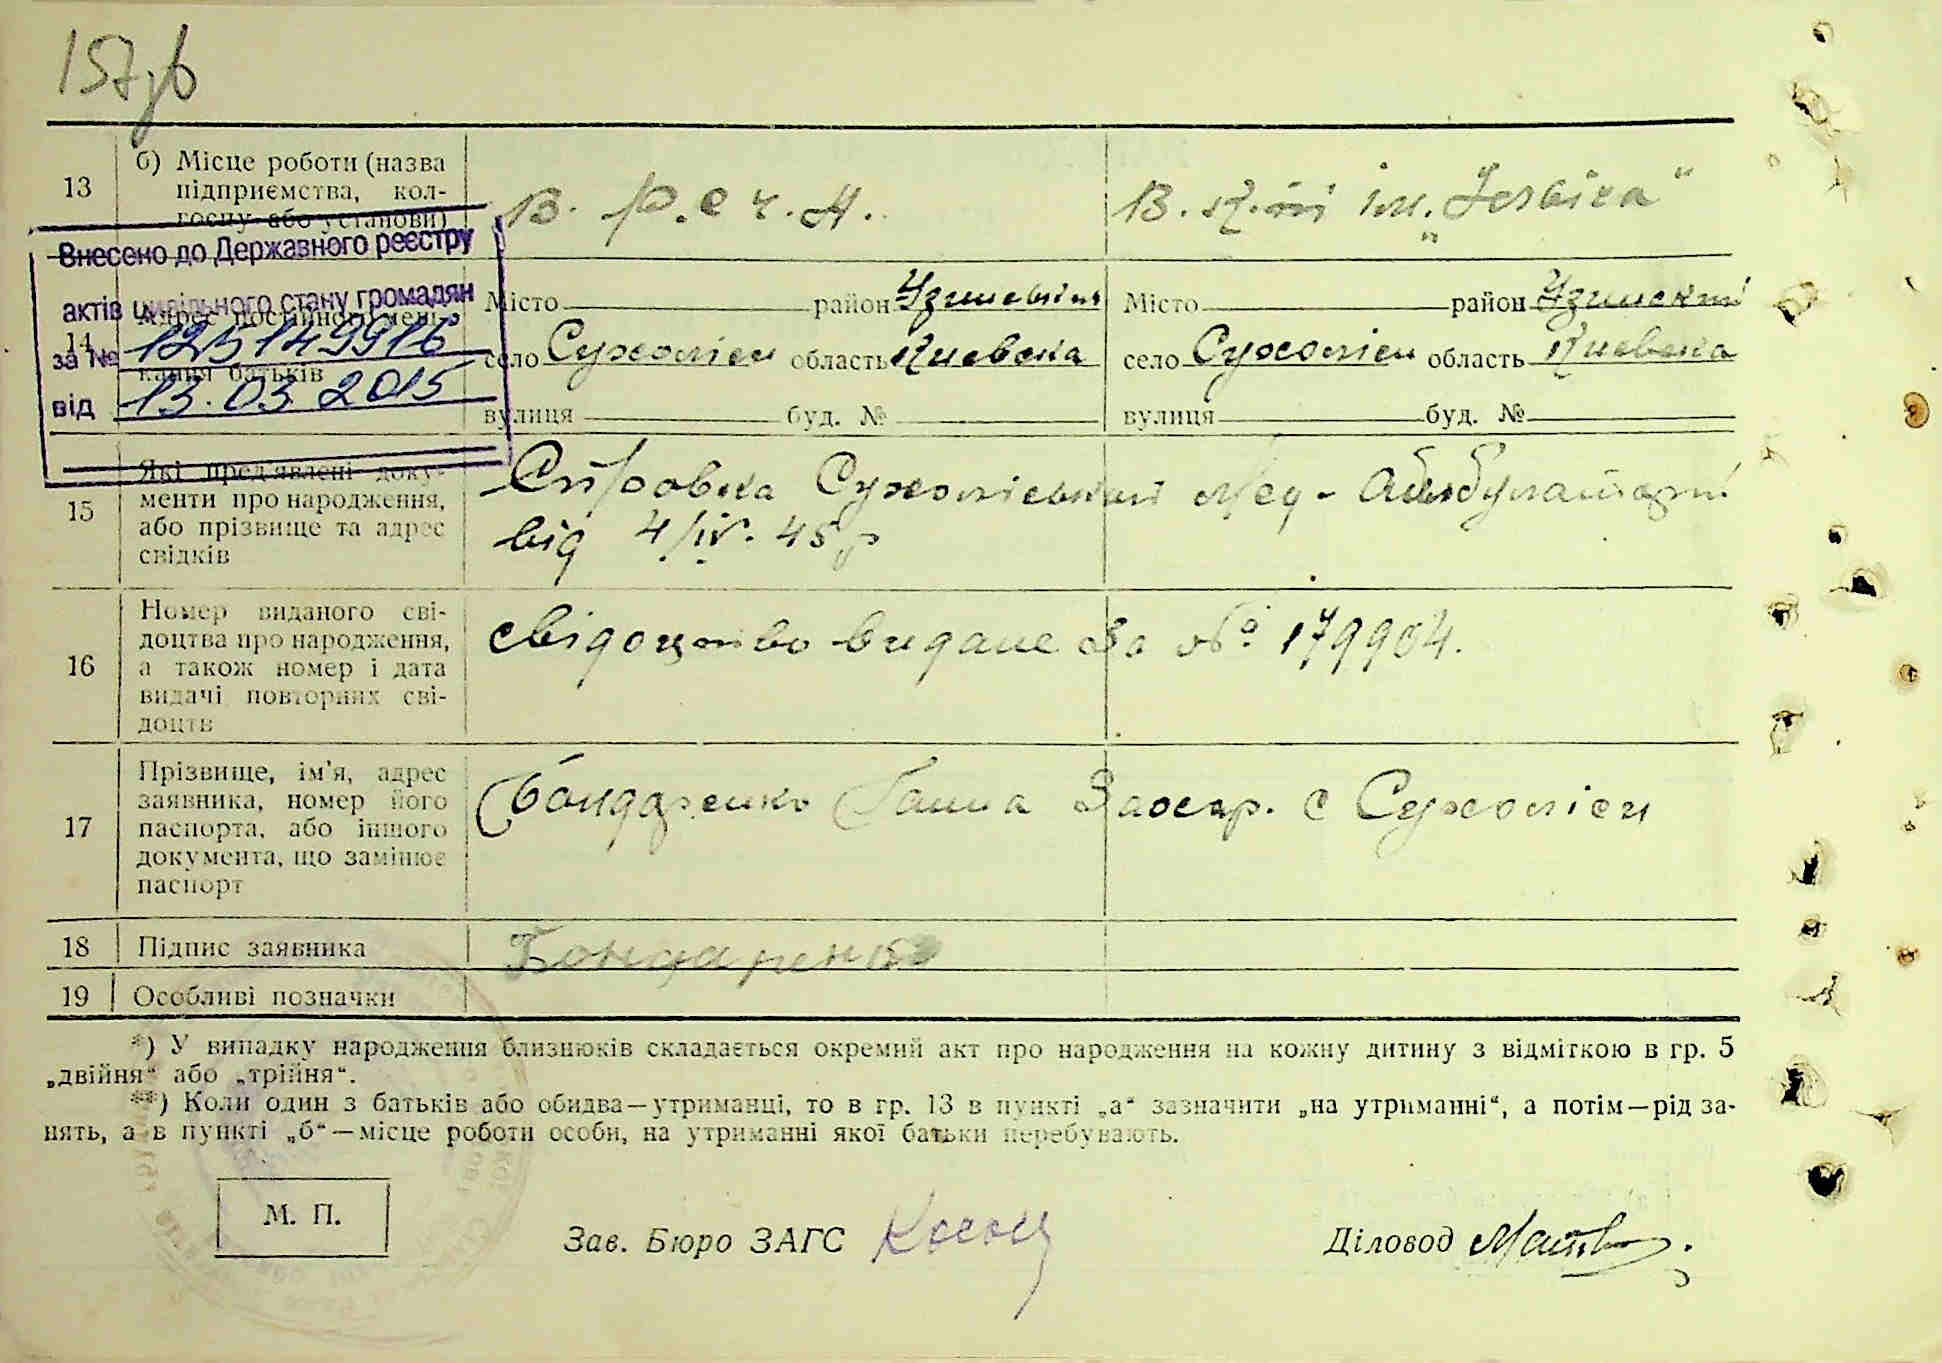 13 б) Місце роботи (назва
підприємства, кол-
госпу або установи)
В. Р.С.Ч.А.
В. к. ім.
Внесено до Державного реєстру
актів цивільного стану громадян
за №
від 13.03.2015
14 Адрес постійного меш-
кання батьків
Місто район Узинський
село Сухоліси область Киевска
вулиця буд. №
Місто район Узинский
село Сухоліси область Киевска
вулиця буд. №
15 Які пред'явлені доку-
менти про народження,
або прізвище та адрес
свідків
Справка Сухоліський Мед-Амбулаторії
від 4/IV. 45 р
16 Номер виданого сві-
доцтва про народження,
а також номер і дата
видачі повторних сві-
доцтв
свідоцтво видане За № 179904.
17 Прізвище, ім'я, адрес
заявника, номер його
паспорта, або іншого
документа, що замінює
паспорт
Бондаренко Ганна Захар. с Сухоліси
18 Підпис заявника
Бондаренко
19 Особливі позначки
*) У випадку народження близнюків складається окремий акт про народження на кожну дитину з відміткою в гр. 5
„двійня“ або „трійня“.
**) Коли один з батьків або обидва—утриманці, то в гр. 13 в пункті „а“ зазначити „на утриманні“, а потім—рід за-
нять, а в пункті „б“—місце роботи особи, на утриманні якої батьки перебувають.
М. П.
Зав. Бюро ЗАГС
Діловод